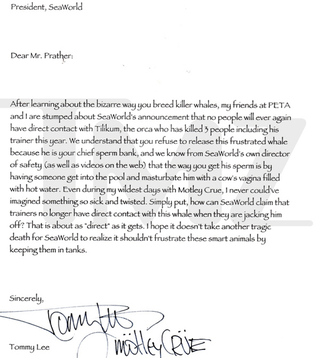 President, SeaWorld
Dear Mr. Prather:
After learning about the bizarre way you breed killer whales, my friends at PETA
and I are stumped about SeaWorld's announcement that no people will ever again
have direct contact with Tilikum, the orca who has killed 3 people including his
trainer this year. We understand that you refuse to release this frustrated whale
because he is your chief sperm bank, and we know from SeaWorld's own director
of safety (as well as videos on the web) that the way you get his sperm is by
having someone get into the pool and masturbate him with a cow's vagina filled
with hot water. Even during my wildest days with Motley Crue, I never could've
imagined something so sick and twisted. Simply put, how can SeaWorld claim that
trainers no longer have direct contact with this whale when they are jacking him
off? That is about as "direct" as it gets. I hope it doesn't take another tragic
death for SeaWorld to realize it shouldn't frustrate these smart animals by
keeping them in tanks.
Sincerely,
Tommy Lee
MÖTLEY CRÜE
Tommy Lee